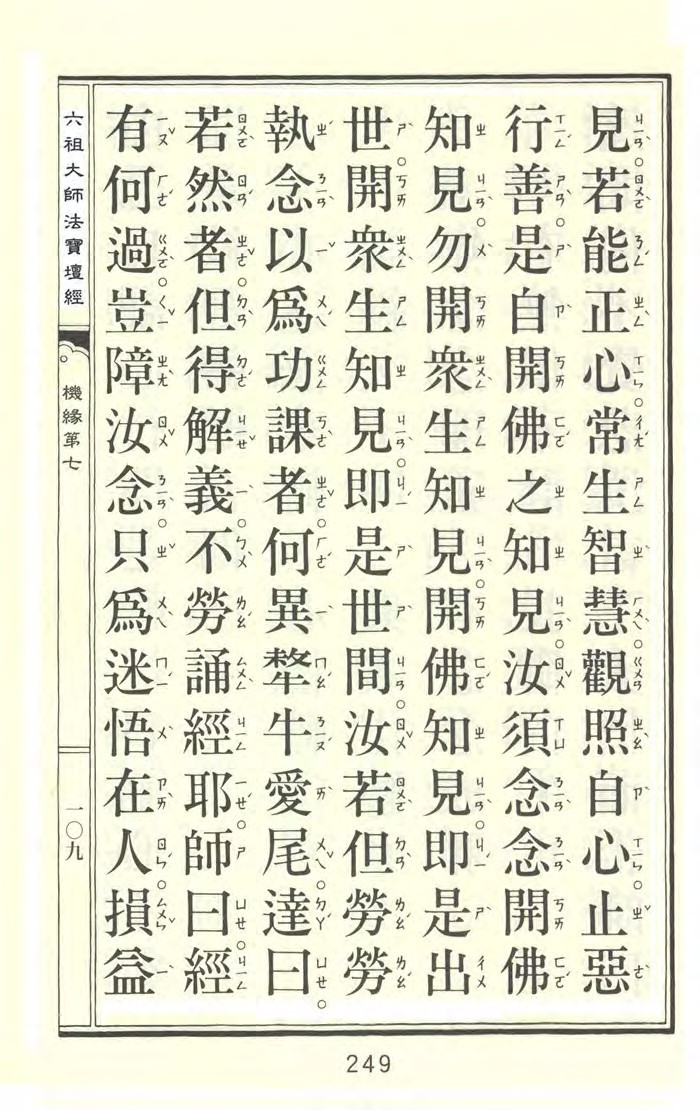 見若能正心常生智慧觀照自心止惡
行善是自開佛之知見汝須念念開佛
知見勿開衆生知見開佛知見即是出
世開衆生知見即是世間汝若但勞勞
執念以爲功課者何異犛牛愛尾達曰
若然者但得解義不勞誦經耶師曰經
有何過豈障汝念只爲迷悟在人損益
六祖大師法寶壇經
機緣第七
一〇九
249